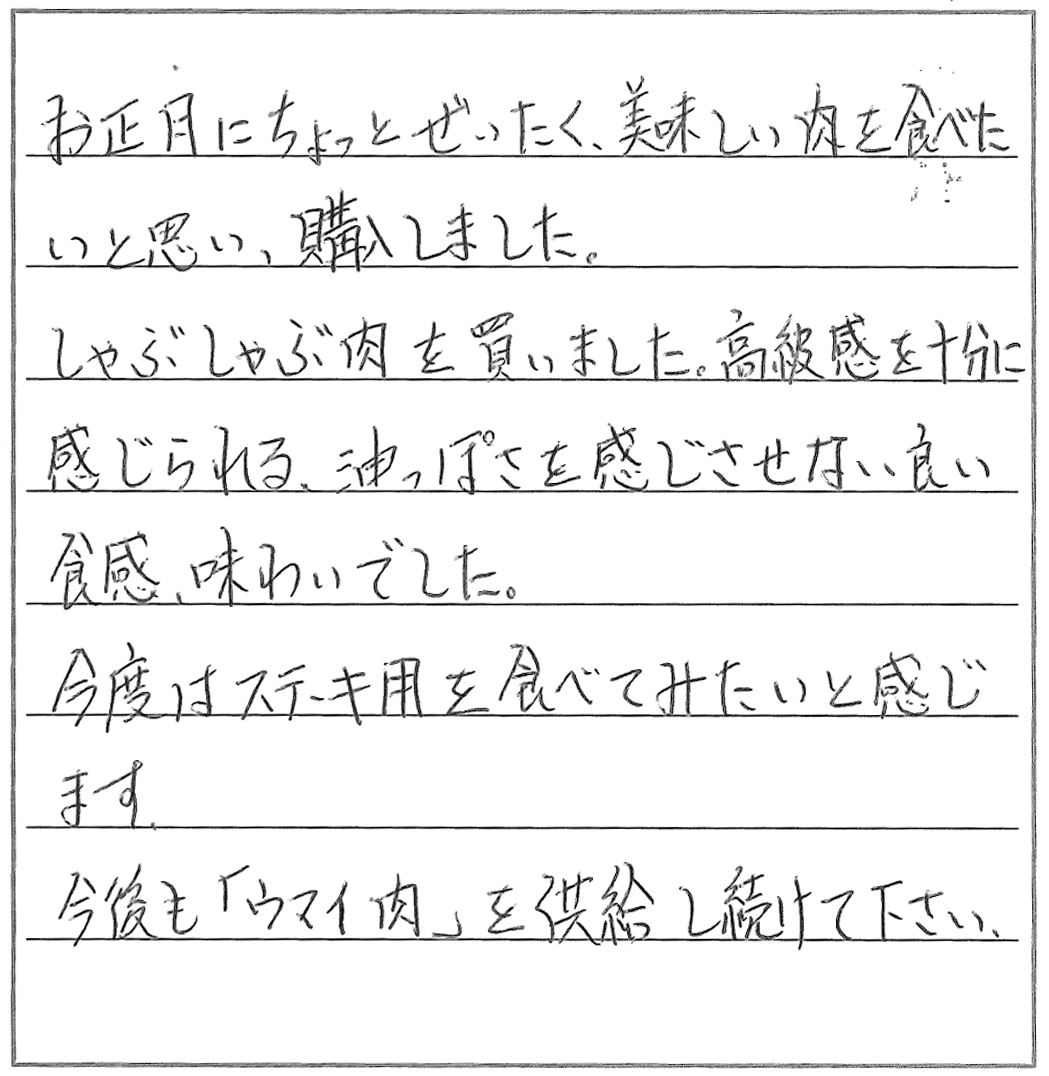 お正月にちょっとぜいたく、美味しい肉を食べた
いと思い、購入しました。
しゃぶしゃぶ肉を買いました。高級感を十分に
感じられる、油っぽさを感じさせない良い
食感、味わいでした。
今度はステーキ用を食べてみたいと感じ
ます。
今後も「ウマイ肉」を供給し続けて下さい、